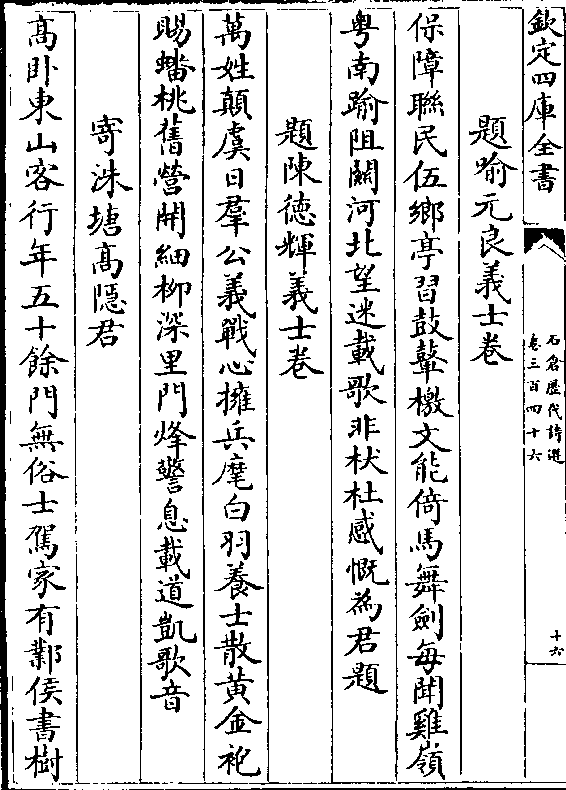 欽定四庫全書
石倉歴代詩選
卷三百四十六
十六
題喻元良義士卷
保障聯民伍鄉亭習鼓鼙檄文能倚馬舞劍每聞雞嶺
粤南踰阻闗河北望迷載歌非杕杜感慨為君題
題陳徳輝義士卷
萬姓顛虞日羣公義戰心擁兵麾白羽養士散黃金袍
賜蟠桃舊營開細柳深里門烽警息載道凱歌音
寄洙塘髙隠君
髙卧東山客行年五十餘門無俗士駕家有鄴侯書樹